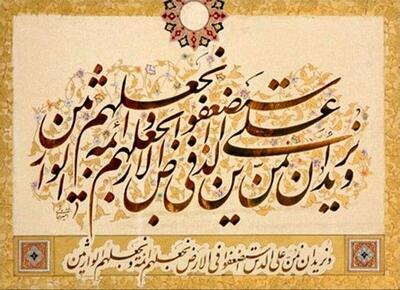 ونريد ان نمن على الذين استضعفوا في الارض ونجعلهم ائمة ونجعلهم الوارثين
ونريد ان نمن على الذين استضعفوا في الارض ونجعلهم ائمة ونجعلهم الوارثين